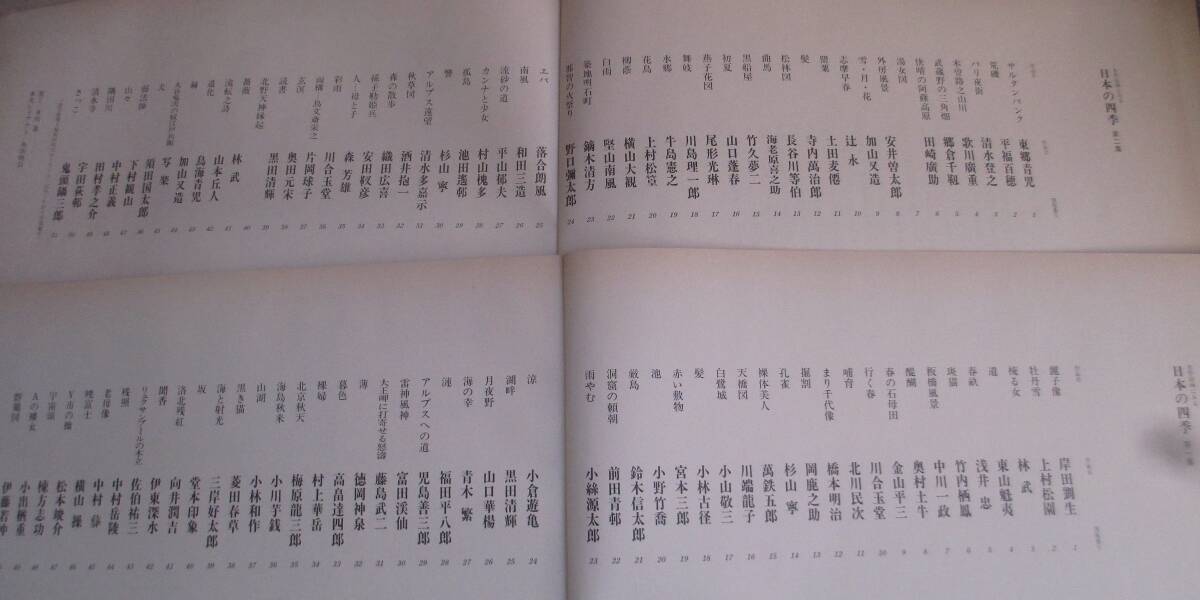 日本の四季 第二集
サルタンバンク 東郷青児 1
平福百穂 2
荒磯 清水登之 3
パリ夜街
木曽路之山川 歌川廣重 4
武蔵野の三角畑 郷倉千靱 5
快晴の阿蘇高原 田崎廣助 6
湯女図 7
外房風景 安井曽太郎 8
雪・月・花 加山又造 9
志摩早春 辻永 10
罌粟 土田麦僊 11
髪 寺内萬治郎 12
松林図 長谷川等伯 13
曲馬 海老原喜之助 14
黒船屋 竹久夢二 15
初夏 山口蓬春 16
燕子花図 尾形光琳 17
舞妓 川島理一郎 18
水郷 牛島憲之 19
花鳥 上村松篁 20
柳蔭 横山大観 21
白雨 堅山南風 22
築地明石町 鏑木清方 23
那智の火祭り 野口彌太郎 24
エバ 落合朗風 25
南風 和田三造 26
流砂の道 平山郁夫 27
カンナと少女 村山槐多 28
孤島 池田遙邨 29
響 杉山寧 30
アルプス遠望 清水多嘉示 31
秋草図 酒井抱一 32
森の散歩 織田広喜 33
孫子勒姫兵 安田靫彦 34
人・母と子 森芳雄 35
彩雨 川合玉堂 36
面構 片岡球子 37
玄溟 奥田元宋 38
読書 黒田清輝 39
北野天神縁起
薔薇 林武 40
流転之泊 山本丘人 41
道化
鳥海青児
加山又造
写楽
犬 須田国太郎
下村観山
山々 中村正義
隅田川 田村孝之介
清水寺 宇田荻邨
鬼頭鍋三郎
日本の四季 第一集
麗子像 岸田劉生 1
牡丹雪 上村松園 2
梳る女 林武 3
道 東山魁夷 4
春畝 浅井忠 5
斑猫 竹内栖鳳 6
板橋風景 中川一政 7
醍醐 奥村土牛 8
春の石母田 金山平三 9
行く春 川合玉堂 10
哺育 北川民次 11
まり千代像 橋本明治 12
掘割 岡鹿之助 13
孔雀 杉山寧 14
裸体美人 萬鉄五郎 15
天橋図 川端龍子 16
白鷺城 小山敬三 17
髪 小林古径 18
赤い敷物 宮本三郎 19
池 小野竹喬 20
厳島 鈴木信太郎 21
洞窟の頼朝 前田青邨 22
雨やむ 小絲源太郎 23
涼 小倉遊亀 24
湖畔 黒田清輝 25
月夜野 山口華楊 26
海の幸 青木繁 27
漣 福田平八郎 28
アルプスへの道 児島善三郎 29
雷神風神 富田渓仙 30
大王岬に打寄せる怒濤 藤島武二 31
薄 徳岡神泉 32
暮色 高畠達四郎 33
裸婦 村上華岳 34
北京秋天 梅原龍三郎 35
海島秋来 小川芋銭 36
山湖 小林和作 37
黒き猫 菱田春草 38
海と射光 三岸好太郎 39
坂 堂本印象 40
洛北残紅 向井潤吉 41
聞香 伊東深水 42
リュクサンブールの木立 佐伯祐三 43
残照 中村岳陵
老母像 中村彝
暁富士 横山操
Y市の橋 松本竣介
宇宙頌 棟方志功
Aの裸女 小出楢重
群鶏図 伊藤若冲